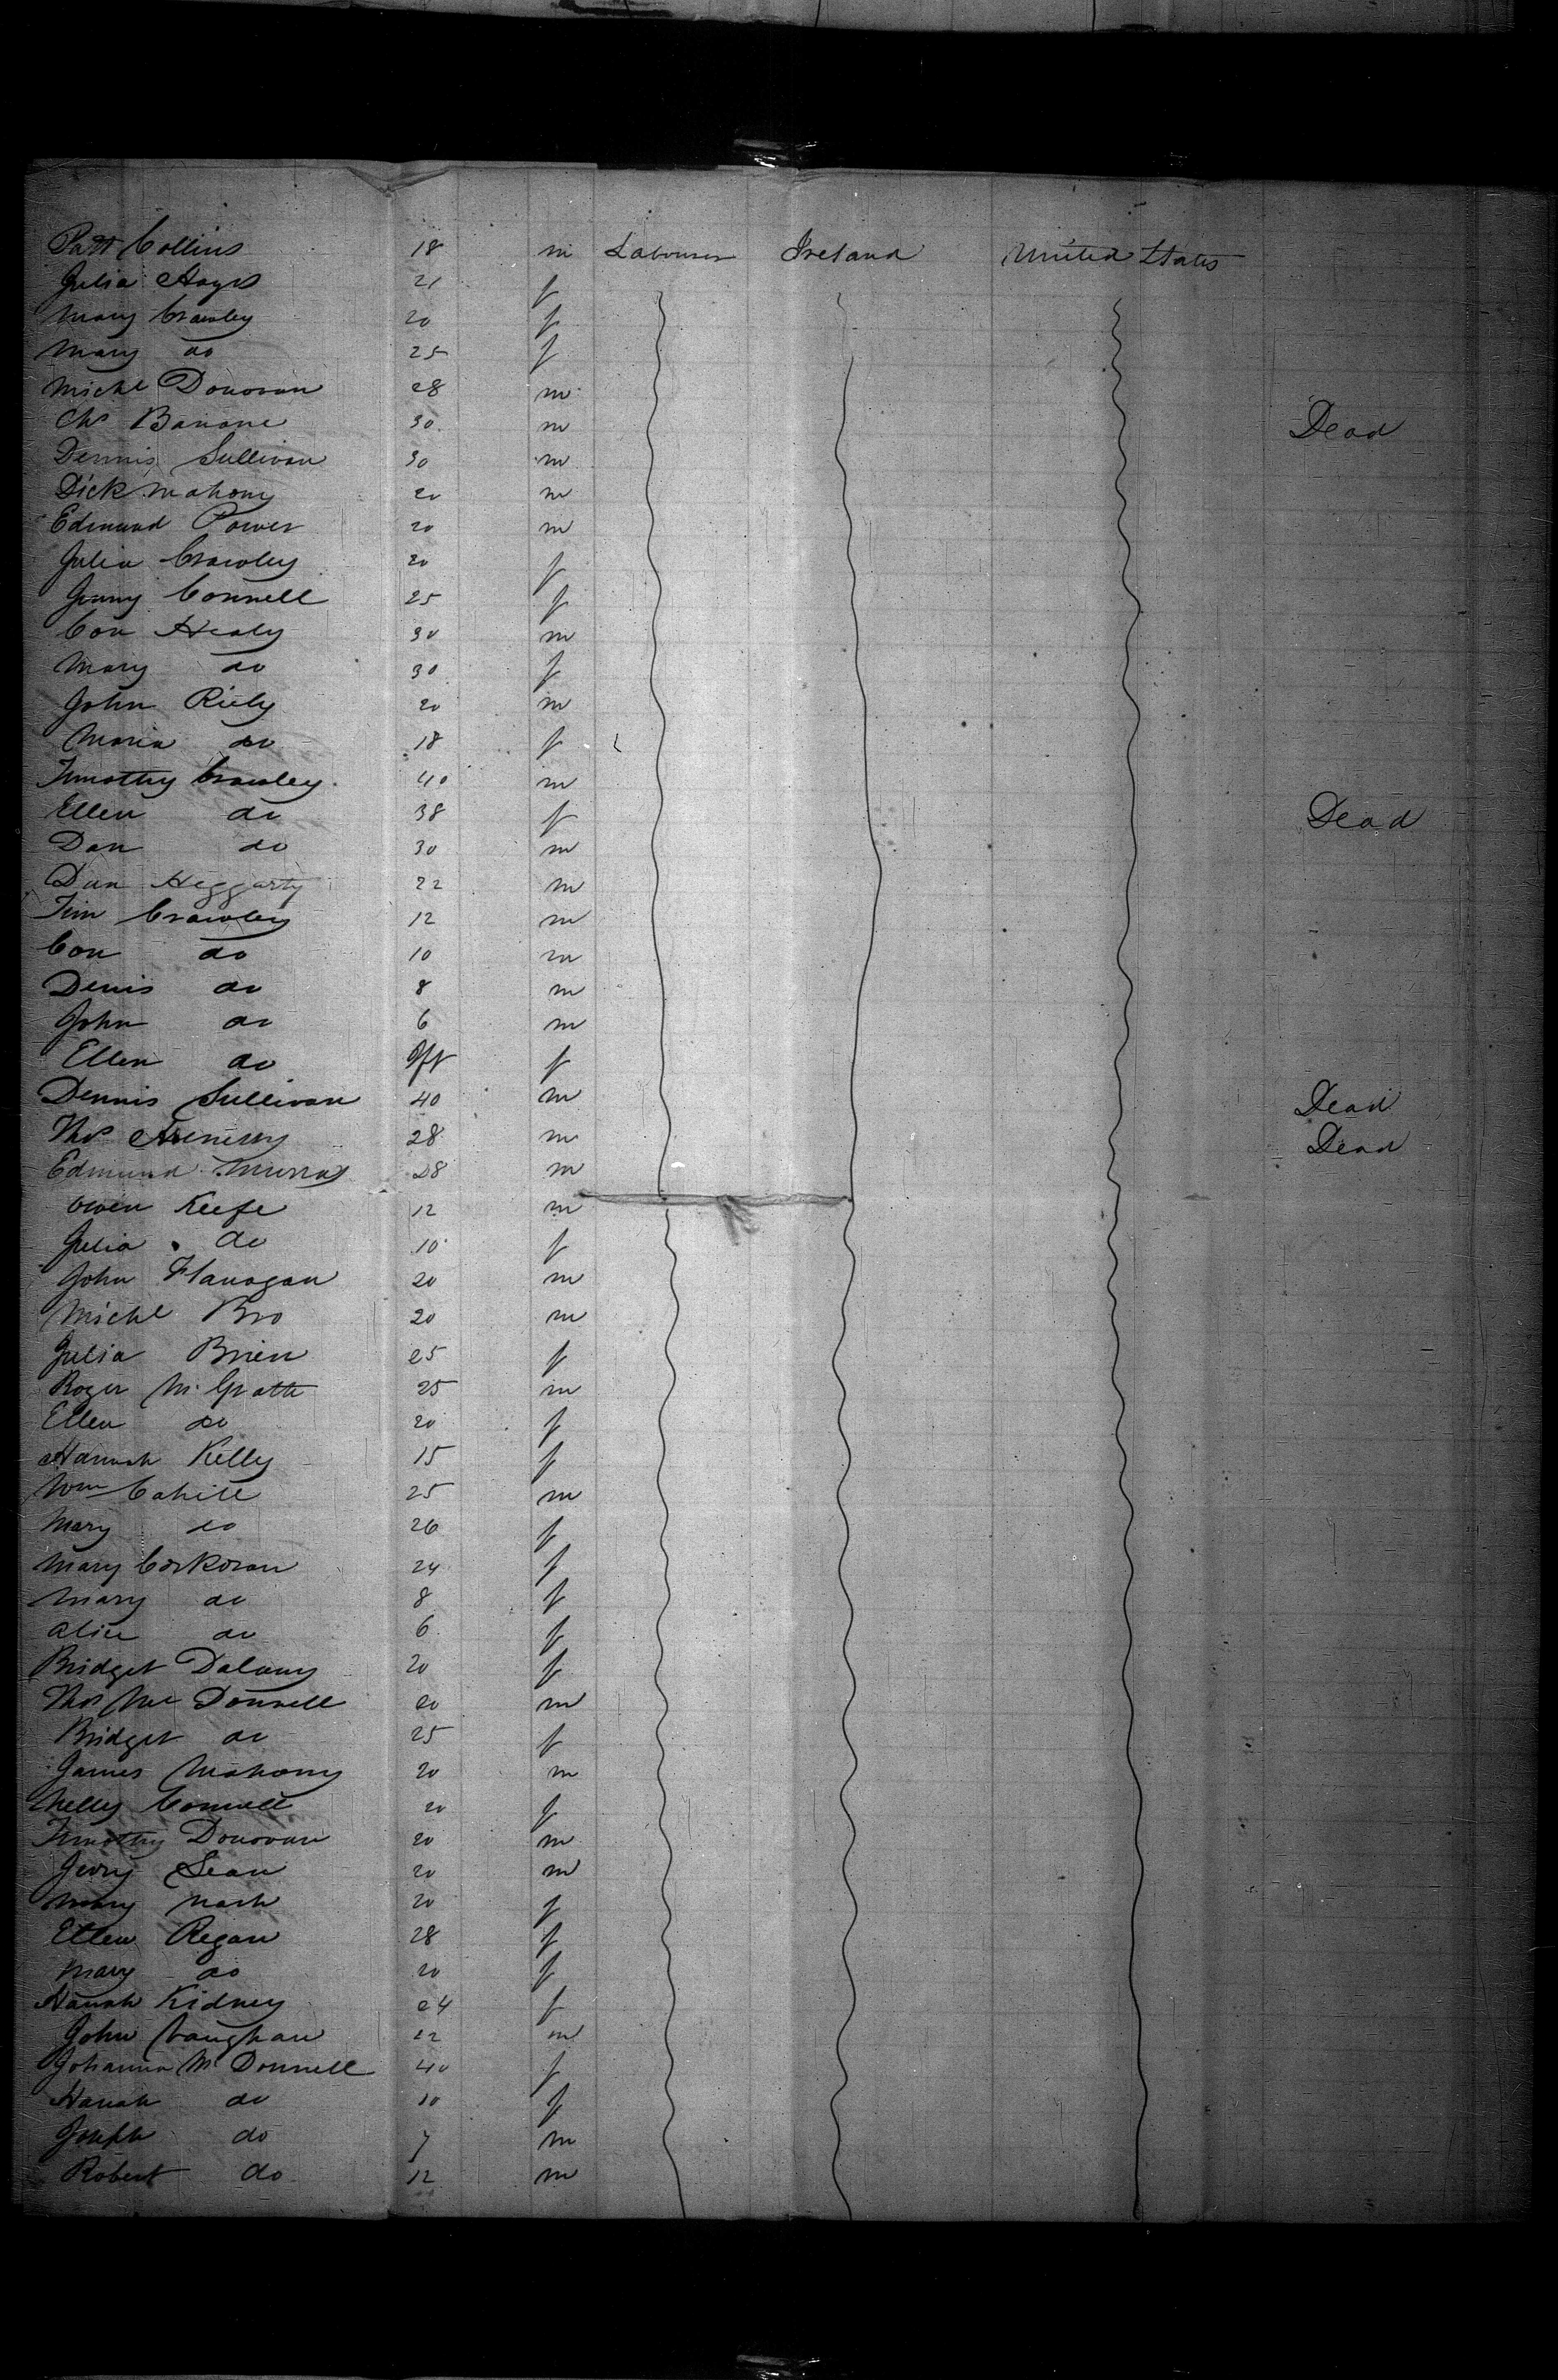 Patt Collins 18 m Labourer Ireland United States
Julia Hayes 21 f
Mary Crawley 20 f
Mary do 25 f
Michl Donovan 28 m
Chs Banane 30 m Dead
Dennis Sullivan 30 m
Dick Mahony 20 m
Edmund Power 20 m
Julia Crawley 20 f
Jenny Connell 25 f
Con Healy 30 m
Mary do 30 f
John Riely 20 m
Maria do 18 f
Timothy Crawley 40 m
Ellen do 38 f Dead
Dan do 30 m
Dan Heggarty 22 m
Tim Crawley 12 m
Con do 10 m
Denis do 8 m
John do 6 m
Ellen do Inft f
Dennis Sullivan 40 m Dead
Thos 28 m Dead
Edmund Murray 28 m
Owen Keefe 12 m
Julia do 10 f
John Flanagan 20 m
Michl Bro 20 m
Julia Brien 25 f
Roger McGrath 25 m
Ellen do 20 f
Hannah Kelly 15 f
Wm Cahill 25 m
Mary do 26 f
Mary Corkoran 24 f
Mary do 8 f
Alice do 6 f
Bridget Dalany 20 f
Thos McDonnell 20 m
Bridget do 25 f
James Mahony 20 m
Nelly Connell 20 f
Timothy Donovan 20 m
Jerry Lean 20 m
Mary Nash 20 f
Ellen Regan 28 f
Mary do 20 f
Hanah Kidney 24 f
John Vaughan 22 m
Johanna McDonnell 40 f
Hanah do 10 f
Joseph do 7 m
Robert do 12 m